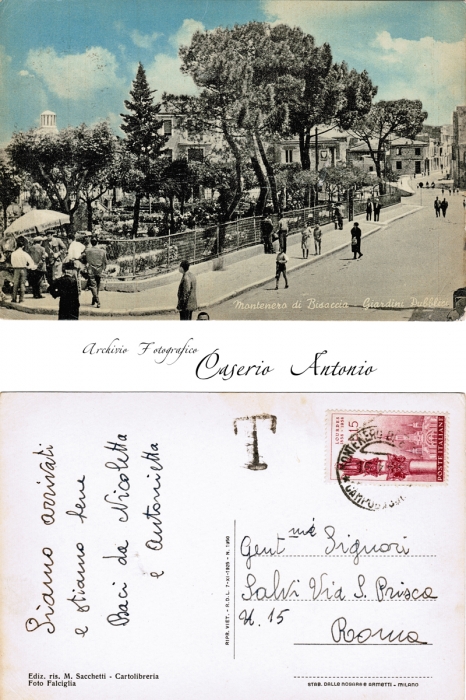 Montenero di Bisaccia - Giardini Pubblici
Archivio Fotografico
Caserio Antonio
Siamo arrivati
e stiamo bene
Baci da Nicoletta
e Antonietta
T
LOURDES
1858 - 1958
15
POSTE ITALIANE
MONTENERO DI
CAMPOBASSO
Gent mé Signori
Salvi Via S. Prisca
N. 15
Roma
RIPR. VIET. - R.D.L. 7-XI-1925 - N. 1950
Ediz. ris. M. Sacchetti - Cartolibreria
Foto Falciglia
STAB. DALLE NOGARE E ARMETTI - MILANO